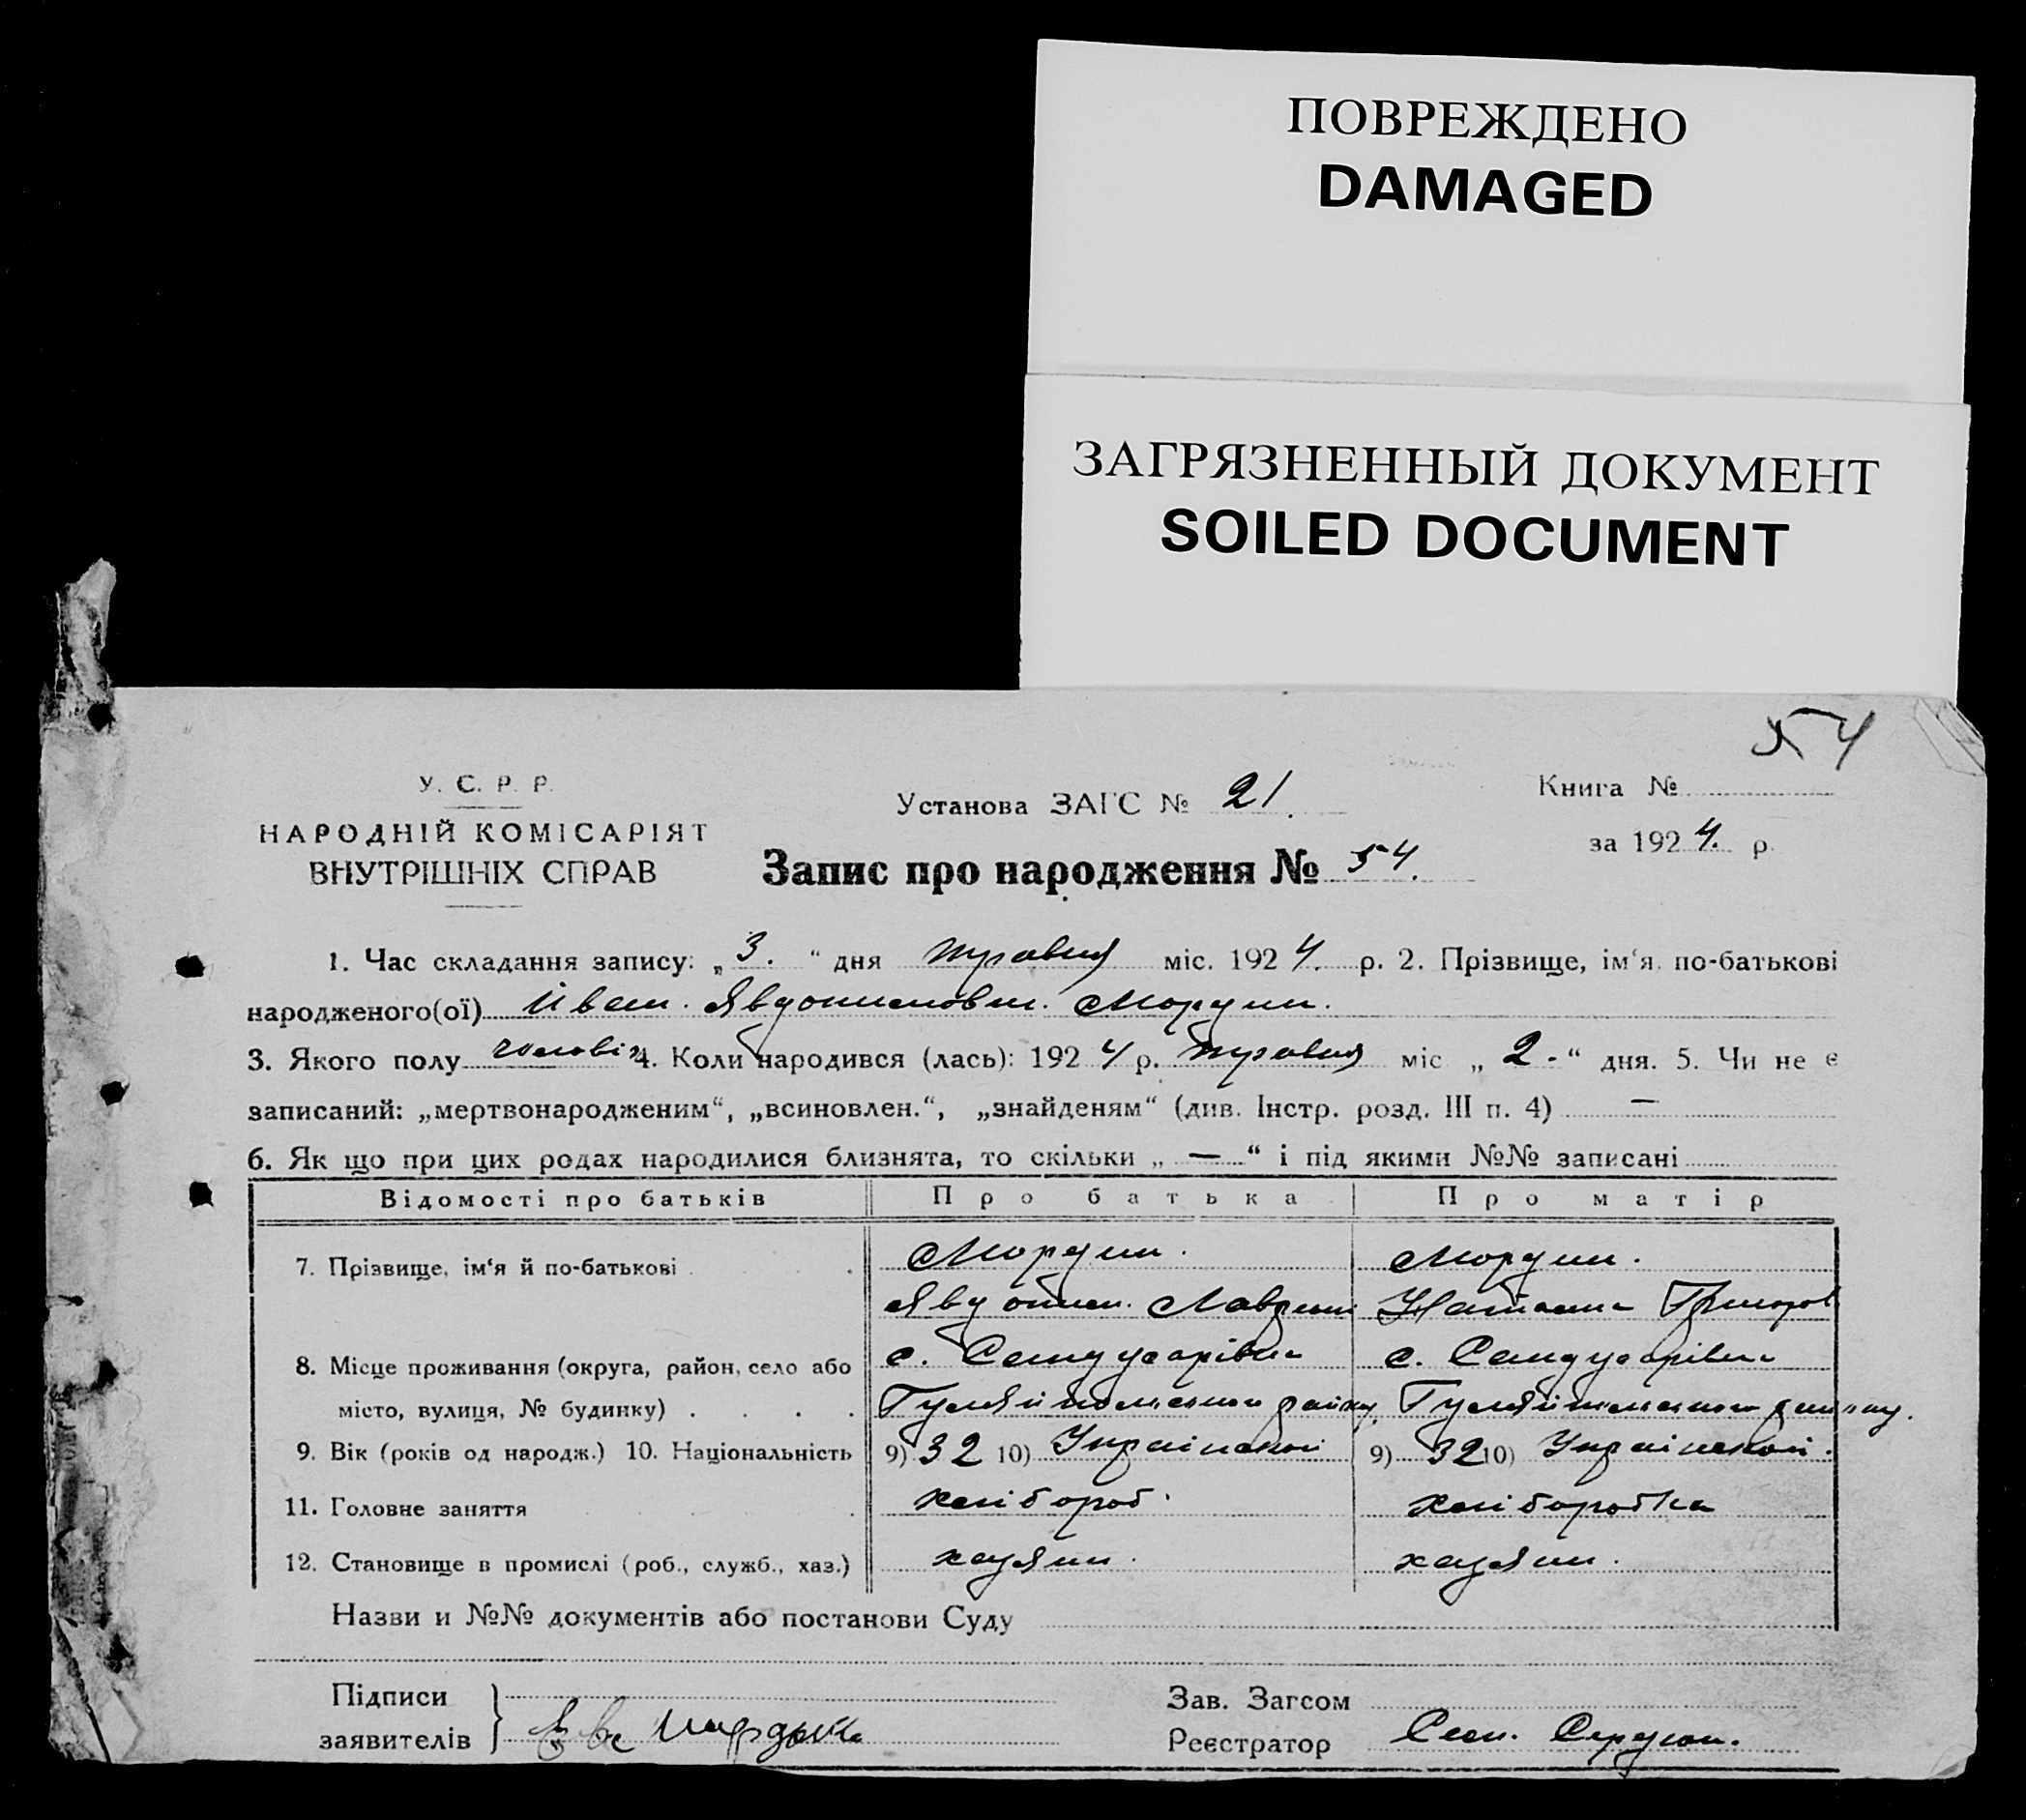 ПОВРЕЖДЕНО
DAMAGED
ЗАГРЯЗНЕННЫЙ ДОКУМЕНТ
SOILED DOCUMENT
54
У. С. Р. Р.
НАРОДНІЙ КОМІСАРІЯТ
ВНУТРІШНІХ СПРАВ
Установа ЗАГС № 21.
Книга №
за 1924. р.
Запис про народження № 54.
1. Час складання запису: „3.“ дня травня міс. 1924. р. 2. Прізвище, ім‘я, по-батькові
народженого(ої) Йван. Явдокимович. Мордик.
3. Якого полу чоловіч 4. Коли народився (лась): 1924 р. травня міс „2.“ дня. 5. Чи не є
записаний: „мертвонародженим“, „всиновлен.“, „знайденям“ (див. Інстр. розд. III п. 4) —
6. Як що при цих родах народилися близнята, то скільки „—“ і під якими №№ записані
Відомості про батьків Про батька Про матір
7. Прізвище, ім‘я й по-батькові Мордик. Мордик.
Явдоким. Наталка Григоров
8. Місце проживання (округа, район, село або с. с.
місто, вулиця, № будинку) Гуляйпольского району, Гуляйпольского району.
9. Вік (років од народж.) 10. Національність 9) 32 10) Української 9) 32 10) Української.
11. Головне заняття хлібороб. хліборобка
12. Становище в промислі (роб., служб., хаз.) хазяин. хазяин.
Назви и №№ документів або постанови Суду
Підписи
заявителів
Зав. Загсом
Реєстратор Сердюк.